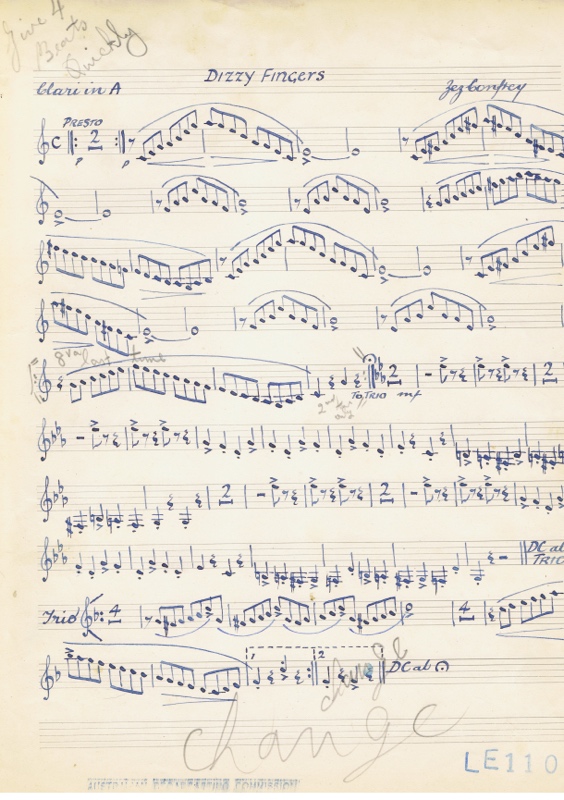 Give 4
Beats
Quickly
Dizzy Fingers
Clari in A
Zez Confrey
PRESTO
2
p
p
8va last time
2
2
To TRIO mf
2
2
2
DC al
TRIO
Trio
4
4
1
2
change
DC al
change
LE110
AUSTRALIAN BROADCASTING COMMISSION